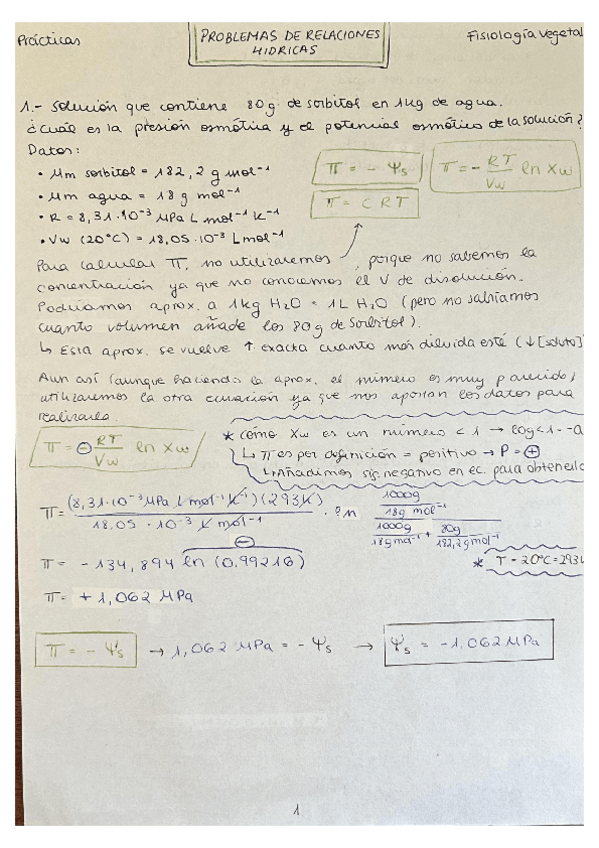 Prácticas
PROBLEMAS DE RELACIONES
HIDRICAS
Fisiología vegetal
1.- Solución que contiene 80g de sorbitol en 1kg de agua.
¿Cuál es la presión osmótica y el potencial osmótico de la solución?
Datos:
• Mm sorbitol = 182,2 g mol⁻¹
• Mm agua = 18 g mol⁻¹
• R = 8,31·10⁻³ MPa L mol⁻¹ K⁻¹
• Vw (20°C) = 18,05·10⁻³ L mol⁻¹
π = - Ψs
π = - RT/Vw ln Xw
π = C R T
Para calcular π, no utilizaremos , porque no sabemos la
concentración ya que no conocemos el V de disolución.
Podríamos aprox. a 1kg H₂O = 1L H₂O (pero no sabríamos
cuanto volumen añade los 80g de sorbitol).
↳ Esta aprox. se vuelve ↑ exacta cuanto más diluida esté (↓[soluto]
Aun así (aunque haciendo la aprox. el número es muy parecido)
utilizaremos la otra ecuación ya que nos aportan los datos para
realizarla.
π = ⊖ RT/Vw ln Xw
* Cómo Xw es un número < 1 → log<1 = -a
↳ π es por definición = positivo → P = ⊕
↳ Añadimos sig. negativo en ec. para obtenerlo
π = (8,31·10⁻³ MPa L mol⁻¹ K⁻¹)(293K) / 18,05·10⁻³ L mol⁻¹ · ln (1000g / 18g mol⁻¹) / (1000g / 18g mol⁻¹ + 80g / 182,2g mol⁻¹)
⊖
π = - 134,894 ln (0,99216)
* T = 20°C = 293K
π = + 1,062 MPa
π = - Ψs → 1,062 MPa = - Ψs → Ψs = -1,062 MPa
1